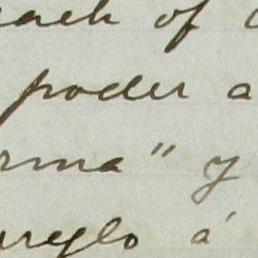 each of
poder a
rma" y
arreglo á